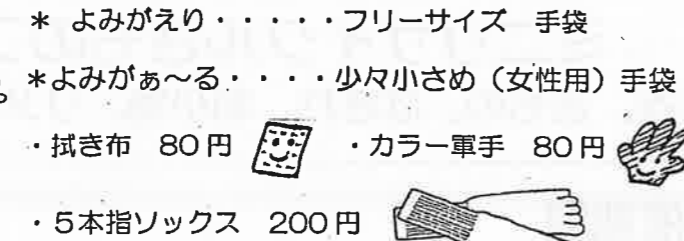 * よみがえり・・・・・フリーサイズ 手袋
*よみがぁ～る・・・・少々小さめ（女性用）手袋
・拭き布 80円 ・カラー軍手 80円
・5本指ソックス 200円